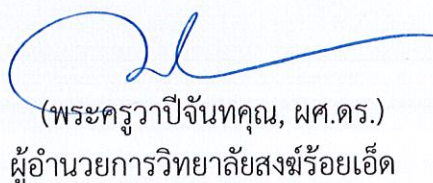 (พระครูวาปีจันทคุณ, ผศ.ดร.)
ผู้อำนวยการวิทยาลัยสงฆ์ร้อยเอ็ด